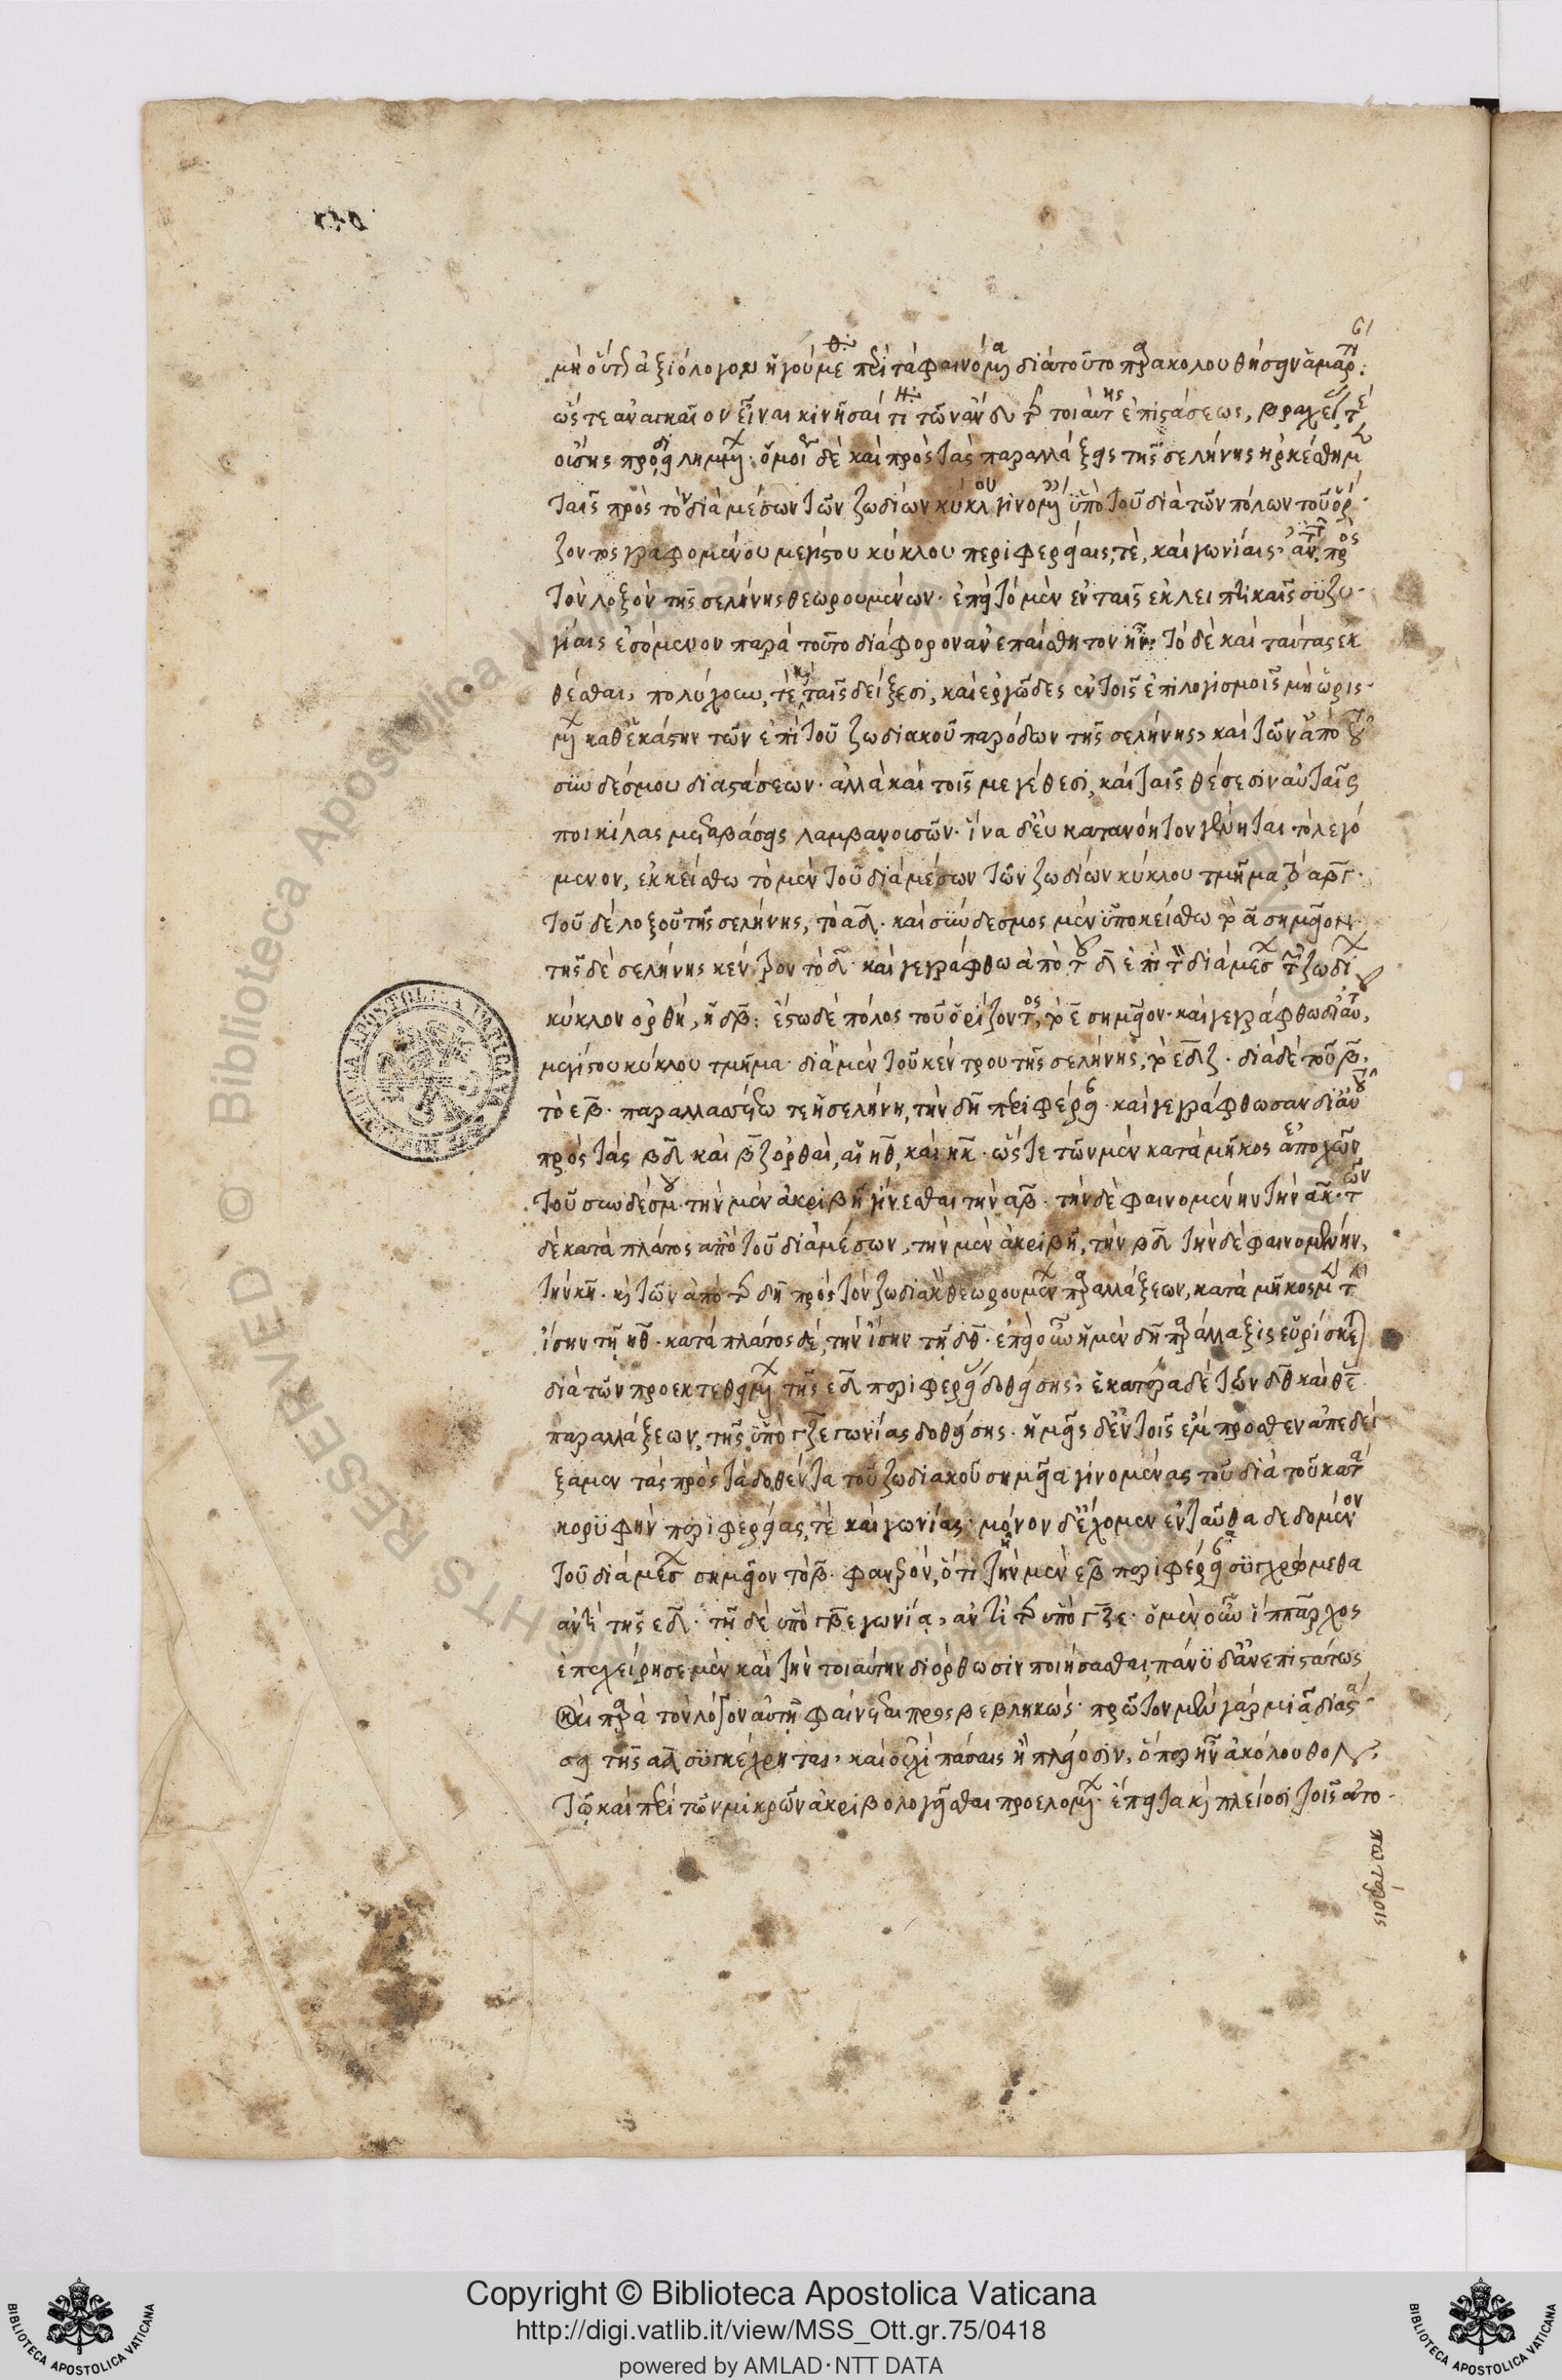 μὴ οὕτως ἀξιόλογον ἡγούμε περὶ τὰ φαινόμενα διὰ τοῦτο παρακολουθήσειν ἁμαρτι
ὥστε ἀναγκαῖον εἶναι κινῆσαί τι τῶν ἄνευ τῆς τοιαύτης ἐπιστάσεως, βραχείας τε
οὔσης προσειλημμένων· ὁμοίως δὲ καὶ πρὸς τὰς παραλλάξεις τῆς σελήνης ἠρκέσθημεν
ταῖς πρὸς τὸν διὰ μέσων τῶν ζωδίων κύκλου γινομέναις ὑπὸ τοῦ διὰ τῶν πόλων τοῦ ὁρί
ζοντος γραφομένου μεγίστου κύκλου περιφερείαις τὲ, καὶ γωνίαις, ἀντὶ τῶν πρὸς
τὸν λοξὸν τῆς σελήνης θεωρουμένων· ἐπεὶ τὸ μὲν ἐν ταῖς ἐκλειπτικαῖς συζυ
γίαις ἐσόμενον παρὰ τοῦτο διάφορον ἀνεπαίσθητον ἦν: τὸ δὲ καὶ ταύτας ἐκ
θέσθαι, πολύχουν, τὲ ταῖς δείξεσι, καὶ ἐργῶδες ἐν τοῖς ἐπιλογισμοῖς μὴ ὡρισ
μένων καθ' ἑκάστην τῶν ἐπὶ τοῦ ζωδιακοῦ παρόδων τῆς σελήνης, καὶ τῶν ἀπὸ τοῦ
συνδέσμου διαστάσεων· ἀλλὰ καὶ τοῖς μεγέθεσι, καὶ ταῖς θέσεσιν αὐταῖς
ποικίλας μεταβάσεις λαμβανουσῶν· ἵνα δ' εὐκατανόητον γένηται τὸ λεγό
μενον, ἐκκείσθω τὸ μὲν τοῦ διὰ μέσων τῶν ζωδίων κύκλου τμῆμα τὸ αβγ·
τοῦ δὲ λοξοῦ τῆς σελήνης, τὸ αδ· καὶ σύνδεσμος μὲν ὑποκείσθω τὸ α σημεῖον·
τῆς δὲ σελήνης κέντρον τὸ δ· καὶ γεγράφθω ἀπὸ τοῦ δ ἐπὶ τὸν διὰ μέσων τῶν ζωδίων
κύκλον ὀρθὴ, ἡ δβ: ἔστω δὲ πόλος τοῦ ὁρίζοντος, τὸ ε σημεῖον· καὶ γεγράφθω δι' αὐτοῦ
μεγίστου κύκλου τμῆμα· διὰ μὲν τοῦ κέντρου τῆς σελήνης, τὸ εδζ· διὰ δὲ τοῦ β,
τὸ εβ· παραλλασσέτω τε ἡ σελήνη, τὴν δη περιφέρειαν· καὶ γεγράφθωσαν διὰ τοῦ
πρὸς τὰς βδ καὶ βζ ὀρθαὶ, αἱ ηθ, καὶ ηκ· ὥστε τῶν μὲν κατὰ μῆκος ἀποχῶν
τοῦ συνδέσμου τὴν μὲν ἀκριβῆ γίνεσθαι τὴν αβ· τὴν δὲ φαινομένην τὴν ακ· τῶν
δὲ κατὰ πλάτος ἀπὸ τοῦ διὰ μέσων, τὴν μὲν ἀκριβῆ, τὴν βδ τὴν δὲ φαινομένην,
τὴν κη· καὶ τῶν ἀπὸ τῆς δη πρὸς τὸν ζωδιακὸν θεωρουμένων παραλλάξεων, κατὰ μῆκος μὲν τὴν
ἴσην τῇ ηθ· κατὰ πλάτος δὲ, τὴν ἴσην τῇ δθ· ἐπεὶ οὖν ἡ μὲν δη παράλλαξις εὑρίσκεται
διὰ τῶν προεκτεθειμένων τῆς εδ περιφερείας δοθείσης, ἑκατέρα δὲ τῶν δθ καὶ θε
παραλλάξεων, τῆς ὑπὸ γζε γωνίας δοθείσης· ἡμεῖς δ' ἐν τοῖς ἔμπροσθεν ἀπεδεί
ξαμεν τὰς πρὸς τὰ δοθέντα τοῦ ζωδιακοῦ σημεῖα γινομένας τοῦ διὰ τοῦ κατὰ
κορυφὴν περιφερείας τὲ καὶ γωνίας· μόνον δ' ἔχομεν ἐνταῦθα δεδομένον
τοῦ διὰ μέσων σημεῖον τὸ β· φανερὸν, ὅτι τῇ μὲν εβ περιφερείᾳ συγχρώμεθα
ἀντὶ τῆς εδ· τῇ δὲ ὑπὸ γβε γωνίᾳ, ἀντὶ τῆς ὑπὸ γζε· ὁ μὲν οὖν ἵππαρχος
ἐπεχείρησε μὲν καὶ τὴν τοιαύτην διόρθωσιν ποιήσασθαι πάνυ δ' ἀνεπιστάτως
καὶ παρὰ τὸν λόγον αὐτῇ φαίνεται προσβεβληκώς· πρῶτον μὲν γὰρ μιᾷ διαστά
σει τῆς αδ συγκέχρηται, καὶ οὐχὶ πάσαις ἢ πλείοσιν, ὅπερ ἦν ἀκόλουθον
τῷ καὶ περὶ τῶν μικρῶν ἀκριβολογεῖσθαι προελομένῳ· ἔπειτα καὶ πλείοσι τοῖς ἀτο
Copyright © Biblioteca Apostolica Vaticana
http://digi.vatlib.it/view/MSS_Ott.gr.75/0418
powered by AMLAD·NTT DATA
BIBLIOTECA APOSTOLICA VATICANA
BIBLIOTECA APOSTOLICA VATICANA